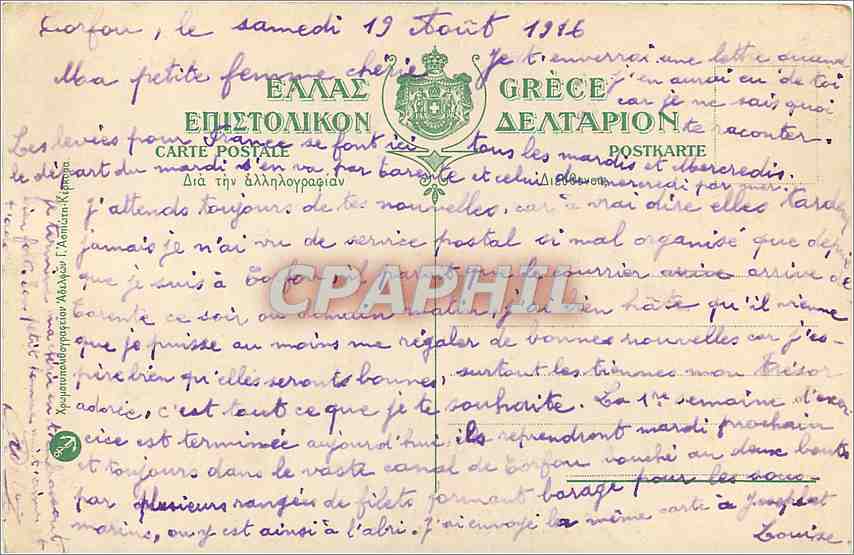 Corfou, le samedi 19 Août 1916
Ma petite femme chérie
Je t'enverrai une lettre quand
j'en aurai eu de toi
car je ne sais quoi
te raconter.
ΕΛΛΑΣ GRÈCE
ΕΠΙΣΤΟΛΙΚΟΝ ΔΕΛΤΑΡΙΟΝ
CARTE POSTALE POSTKARTE
Διὰ τὴν ἀλληλογραφίαν Διεύθυνσις
Les levées pour France se font ici tous les mardis et Mercredis.
le départ du mardi s'en va par Tarente et celui du mercredi par mer.
j'attends toujours de tes nouvelles, car à vrai dire elles tardent
jamais je n'ai vu de service postal si mal organisé que depuis
que je suis à Corfou, il parait que le courrier arrive de
Tarente ce soir ou demain matin, j'ai bien hâte qu'il vienne
que je puisse au moins me régaler de bonnes nouvelles car j'es-
père bien qu'elles seronts bonnes, surtout les tiennes mon trésor
adorée, c'est tout ce que je te souhaite. La 1re semaine d'exer-
cice est terminée aujourd'hui ils reprendront mardi prochain
et toujours dans le vaste canal de Corfou bouché au deux bouts
par plusieurs rangées de filets formant barage pour les sous-
marins, on y est ainsi à l'abri. J'ai envoyé la même carte à Joseph et
Louise.
je termine ma
bien fort
petite femme
Χρωματοτυπολιθογραφεῖον Ἀδελφῶν Γ. Ἀσπιώτη-Κέρκυρα
CPAPHIL